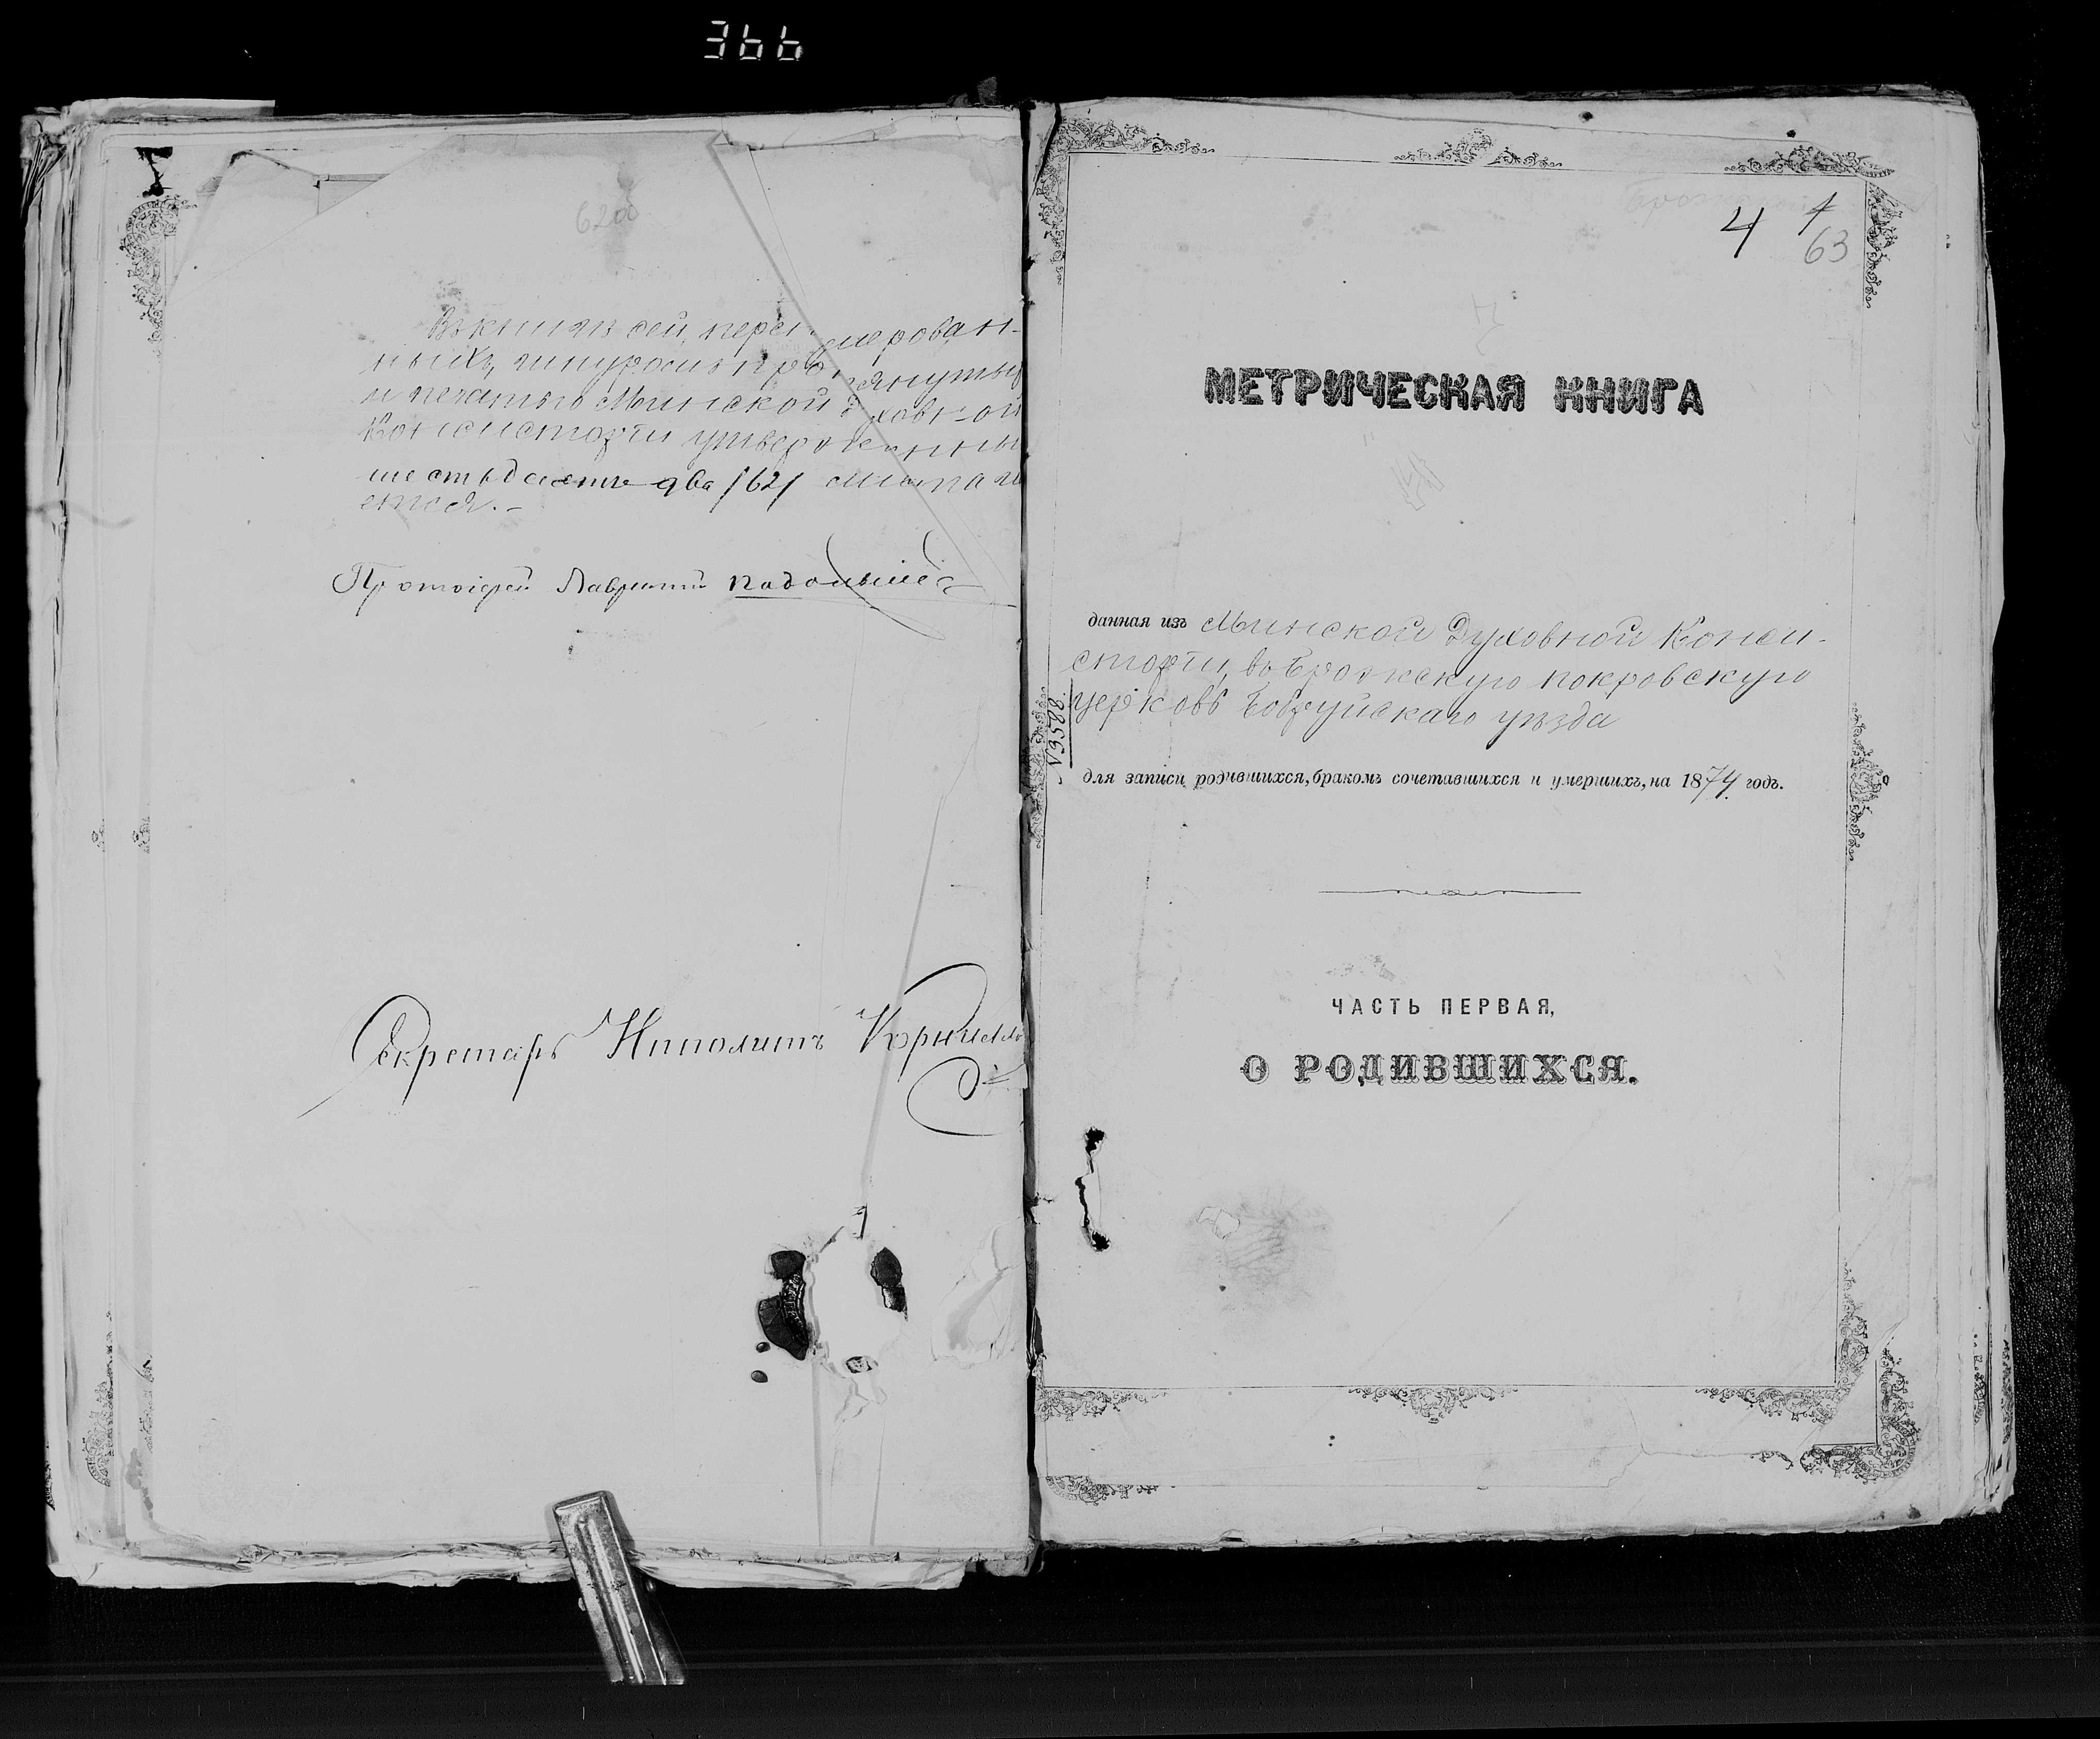 366
62об
Въ книгѣ сей, перенумерован-
ныхъ, шнуромъ протянутыхъ
и печатью Минской Духовной
Консисторіи утвержденныхъ
шестьдесятъ два /62/ листа
ется.-
Протоіерей Лаврентій
Секретарь Ипполитъ
4 1
63
МЕТРИЧЕСКАЯ КНИГА
данная изъ Минской Духовной Конси-
сторіи, въ Брожскую Покровскую
церковь Бобруйскаго уѣзда
№ 3588.
для записи родившихся, бракомъ сочетавшихся и умершихъ, на 1874 годъ.
ЧАСТЬ ПЕРВАЯ,
О РОДИВШИХСЯ.